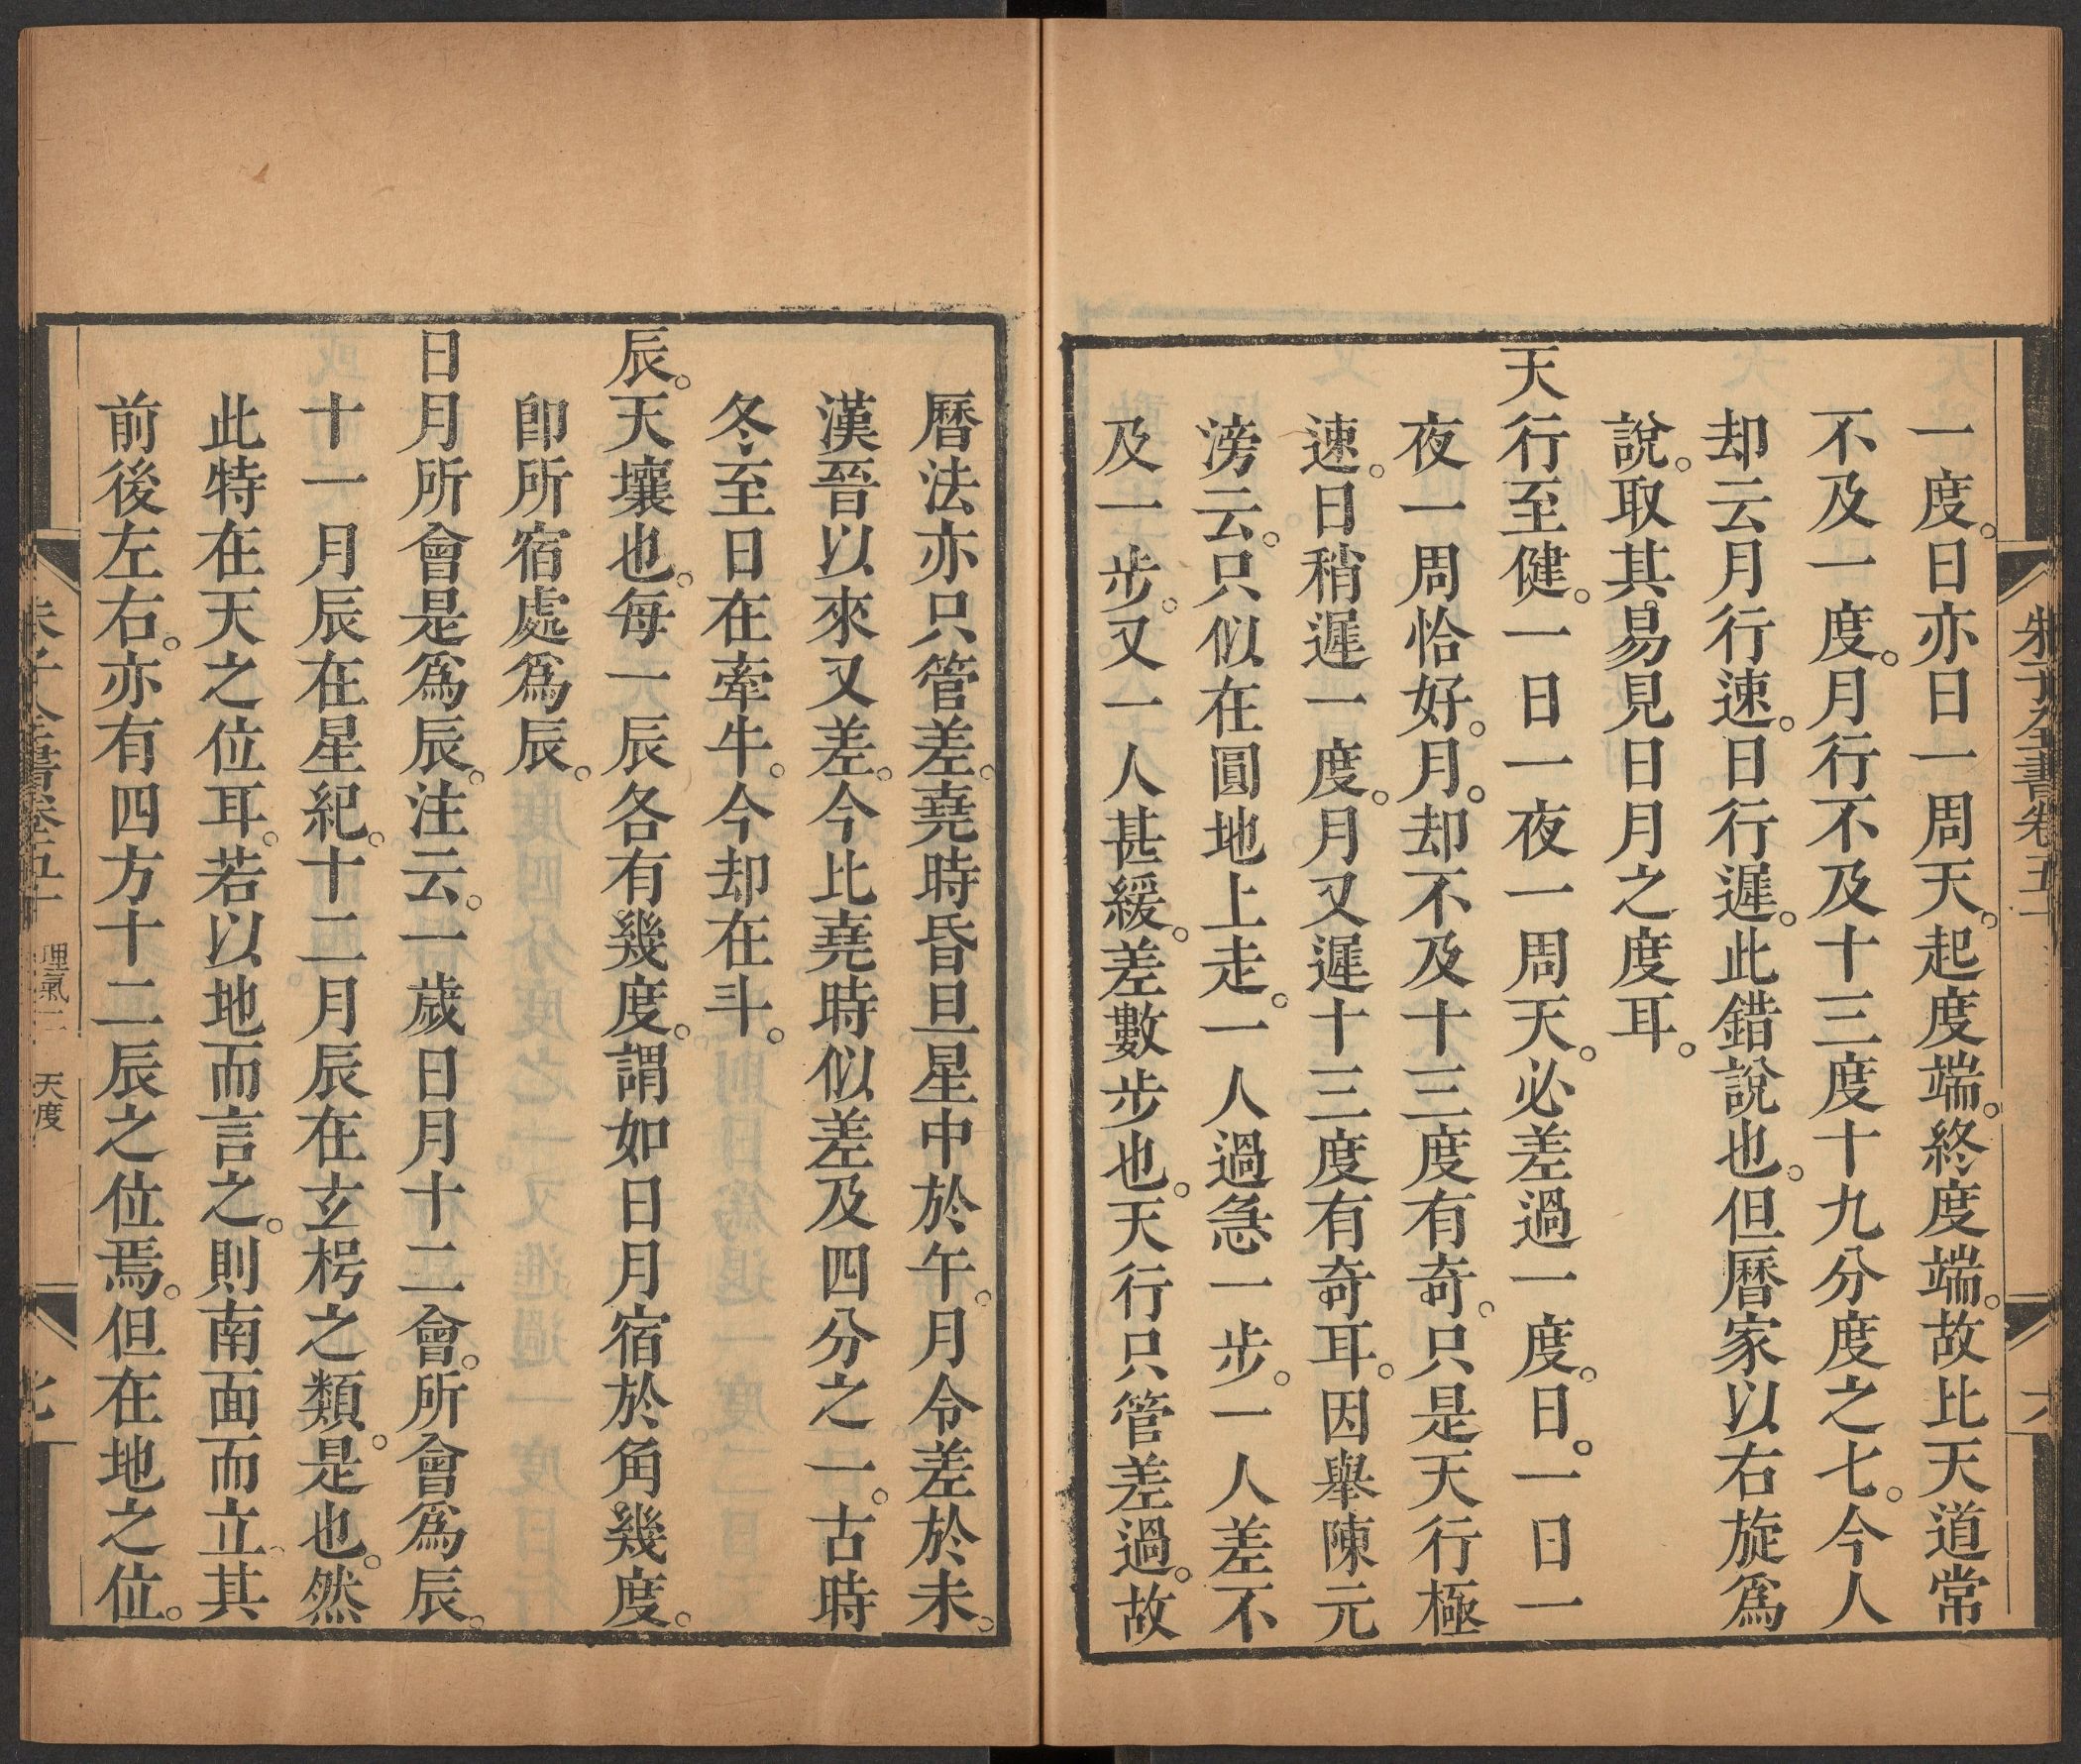 朱子全書卷五十
六
一度。日亦日一周天。起度端。終度端。故比天道常
不及一度。月行不及十三度十九分度之七。今人
却云月行速。日行遲。此錯說也。但曆家以右旋爲
說。取其易見日月之度耳。
天行至健。一日一夜一周天。必差過一度。日。一日一
夜一周恰好。月。却不及十三度有奇。只是天行極
速。日稍遲一度。月又遲十三度有奇耳。因舉陳元
滂云。只似在圓地上走。一人過急一步。一人差不
及一步。又一人甚緩。差數步也。天行只管差過。故
曆法亦只管差。堯時昏旦星中於午。月令差於未。
漢晉以來又差。今比堯時似差及四分之一。古時
冬至日在牽牛。今却在斗。
辰。天壤也。每一辰各有幾度。謂如日月宿於角幾度。
卽所宿處爲辰。
日月所會是爲辰。注云。一歲日月十二會。所會爲辰。
十一月辰在星紀。十二月辰在玄枵之類。是也。然
此特在天之位耳。若以地而言之。則南面而立。其
前後左右。亦有四方十二辰之位焉。但在地之位。
朱子全書卷五十 理氣二 天度